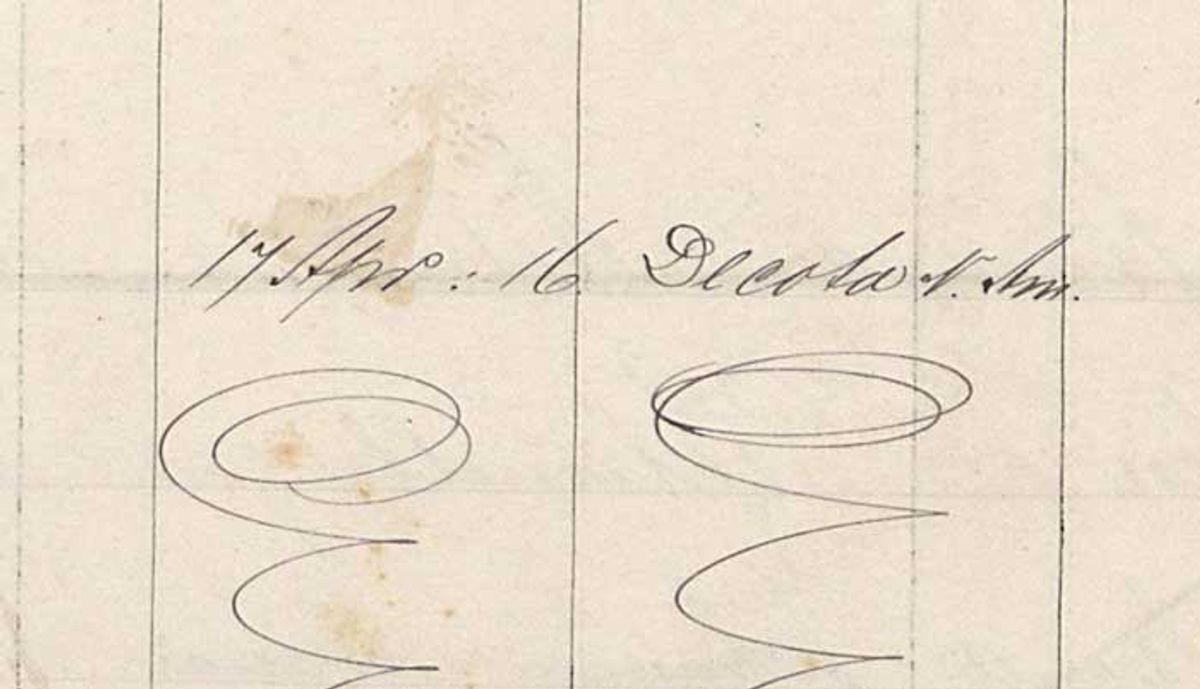 17 Apr: 16 Decota N. Am.